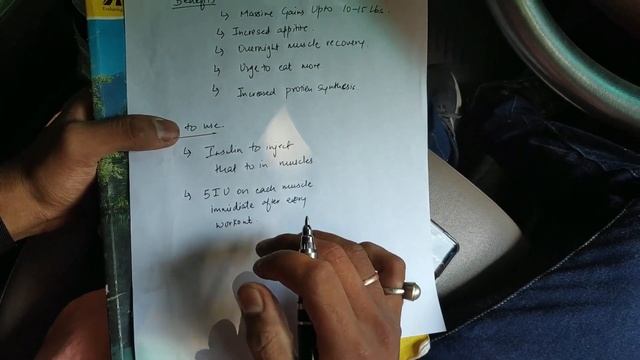 Benefits
↳ Massive Gains Upto 10-15 Lbs.
↳ Incresed appitite.
↳ Overnight muscle recovery.
↳ Urge to eat more
↳ Increased protien synthesis.
to use
↳ Insulin to inject
that to in muscles
↳ 5 IU on each muscle
immidiate after every
workout.